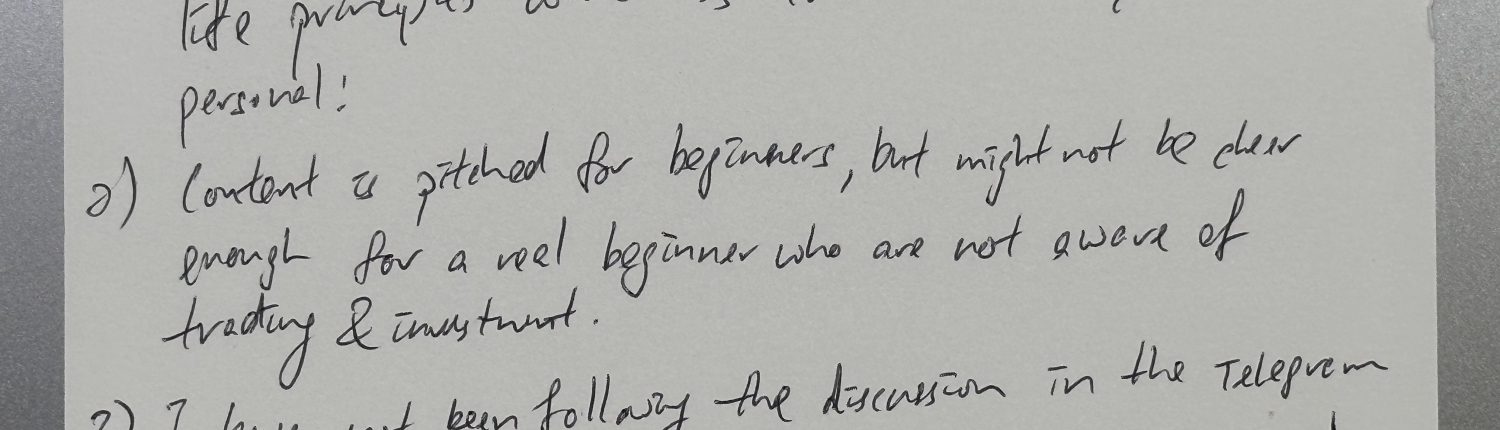 life principles
personal!
2) Content is pitched for beginners, but might not be clear
enough for a real beginner who are not aware of
trading & investment.
3) I have not been following the discussion in the Telegram